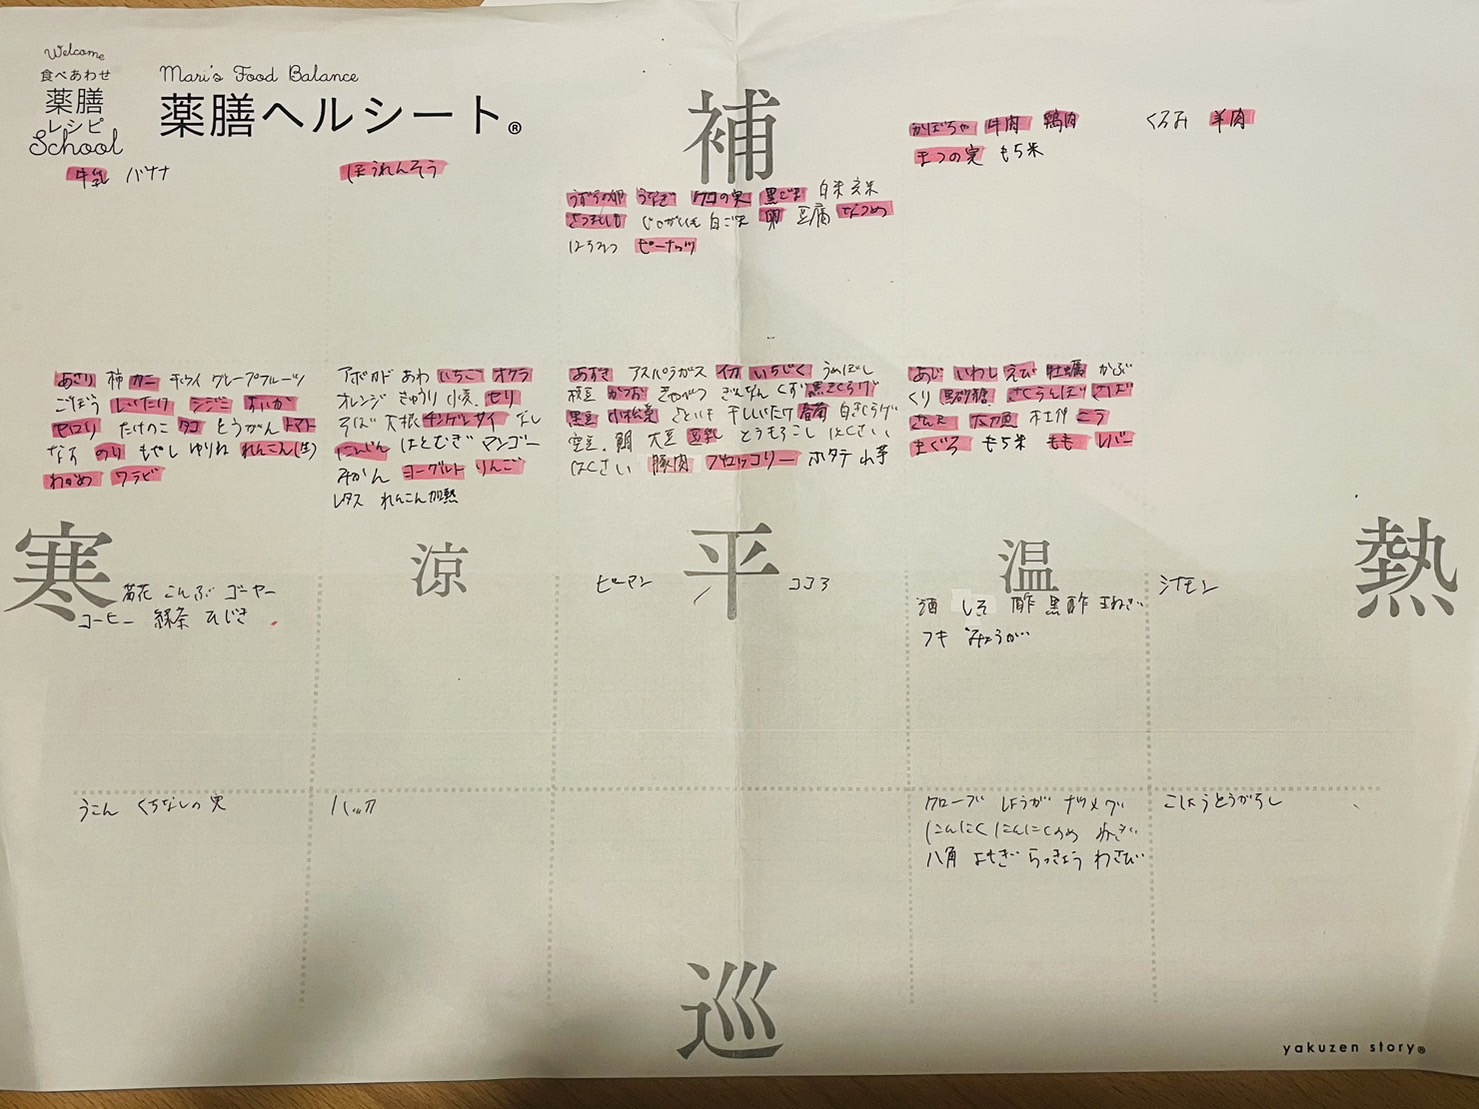 Welcome
食べあわせ
薬膳
レシピ
School
Mari's Food Balance
薬膳ヘルシート。®
補
牛乳 バナナ
ほうれんそう
うずらの卵 うなぎ クコの実 黒ごま 白米 玄米
さつまいも じゃがいも 白ごま 卵 豆腐 なつめ
はちみつ ピーナッツ
かぼちゃ 牛肉 鶏肉
まつの実 もち米
くるみ 羊肉
あさり 柿 カニ キウイ グレープフルーツ
ごぼう しいたけ シジミ すいか
セロリ たけのこ タコ とうがん トマト
なす のり もやし ゆりね れんこん(生)
わかめ ワラビ
アボカド あわ いちご オクラ
オレンジ きゅうり 小麦 セリ
そば 大根 チンゲンサイ なし
にんじん はとむぎ マンゴー
みかん ヨーグルト りんご
レタス れんこん加熱
あずき アスパラガス イカ いちじく うめぼし
枝豆 かつお きゃべつ ぎんなん くず 黒きくらげ
黒豆 小松菜 さといも 干しいたけ 春菊 白きくらげ
空豆 鯛 大豆 豆乳 とうもろこし はくさい
はくさい 豚肉 ブロッコリー ホタテ 山芋
あじ いわし えび 牡蠣 かぶ
くり 黒砂糖 さくらんぼ さば
さんま 太刀魚 ニラ
まぐろ もち米 もも レバー
寒
涼
平
温
熱
菊花 こんぶ ゴーヤー
コーヒー 緑茶 ひじき
ピーマン
ココア
酒 しそ 酢 黒酢 玉ねぎ
フキ みょうが
シナモン
うこん くちなしの実
ハッカ
クローブ しょうが ナツメグ
にんにく にんにくのめ ねぎ
八角 よもぎ らっきょう わさび
こしょう とうがらし
巡
yakuzen story®